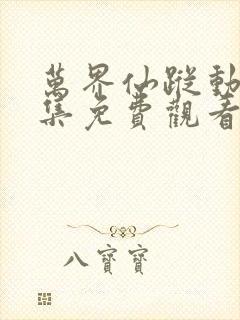 萬界仙蹤動
集免費觀看
八寶寶